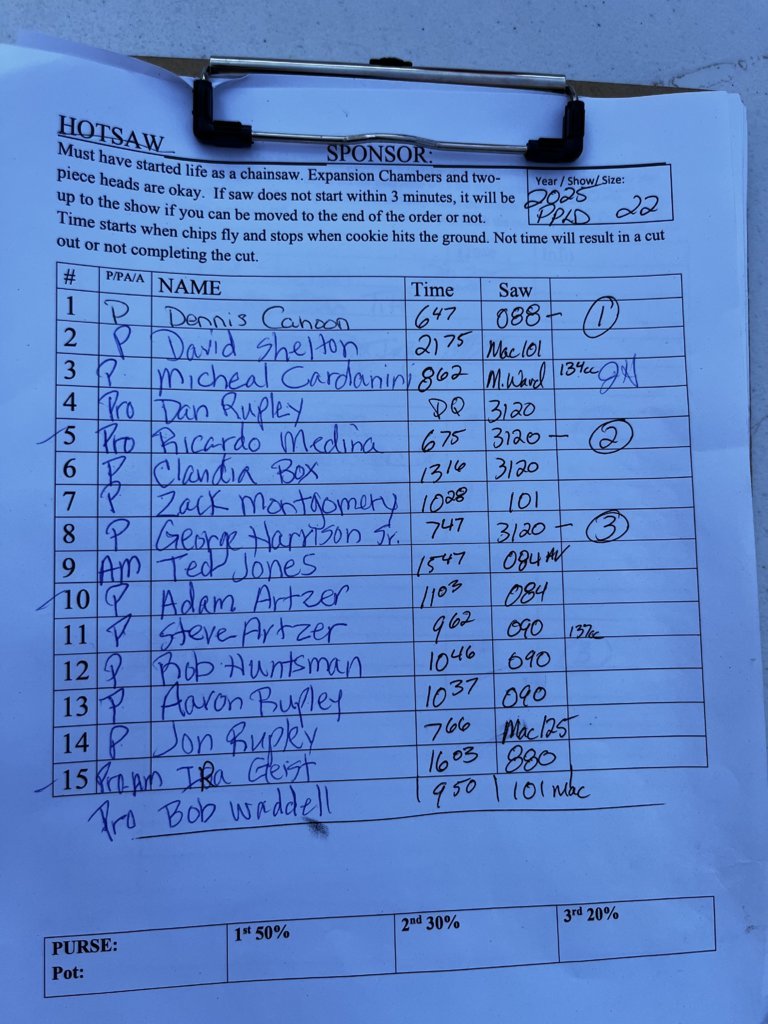 HOTSAW SPONSOR:
Must have started life as a chainsaw. Expansion Chambers and two-
piece heads are okay. If saw does not start within 3 minutes, it will be
up to the show if you can be moved to the end of the order or not.
Time starts when chips fly and stops when cookie hits the ground. Not time will result in a cut
out or not completing the cut.
Year / Show/ Size:
2025
PPLD 22
# P/PA/A NAME Time Saw
1 P Dennis Cahoon 647 088 - 1
2 P David Shelton 2175 Mac 101
3 P Micheal Cardanini 862 M.Ward 134cc
4 Pro Dan Rupley DQ 3120
5 Pro Ricardo Medina 675 3120 - 2
6 P Claudia Box 1316 3120
7 P Zack Montgomery 1028 101
8 P George Harrison Sr. 747 3120 - 3
9 Am Ted Jones 1547 084 AV
10 P Adam Artzer 1103 084
11 P Steve Artzer 962 090 137cc
12 P Bob Huntsman 1046 090
13 P Aaron Rupley 1037 090
14 P Jon Rupley 766 Mac 125
15 Pro Am IRa Geist 1603 880
Pro Bob Waddell 950 101 Mac
PURSE: 1st 50% 2nd 30% 3rd 20%
Pot: